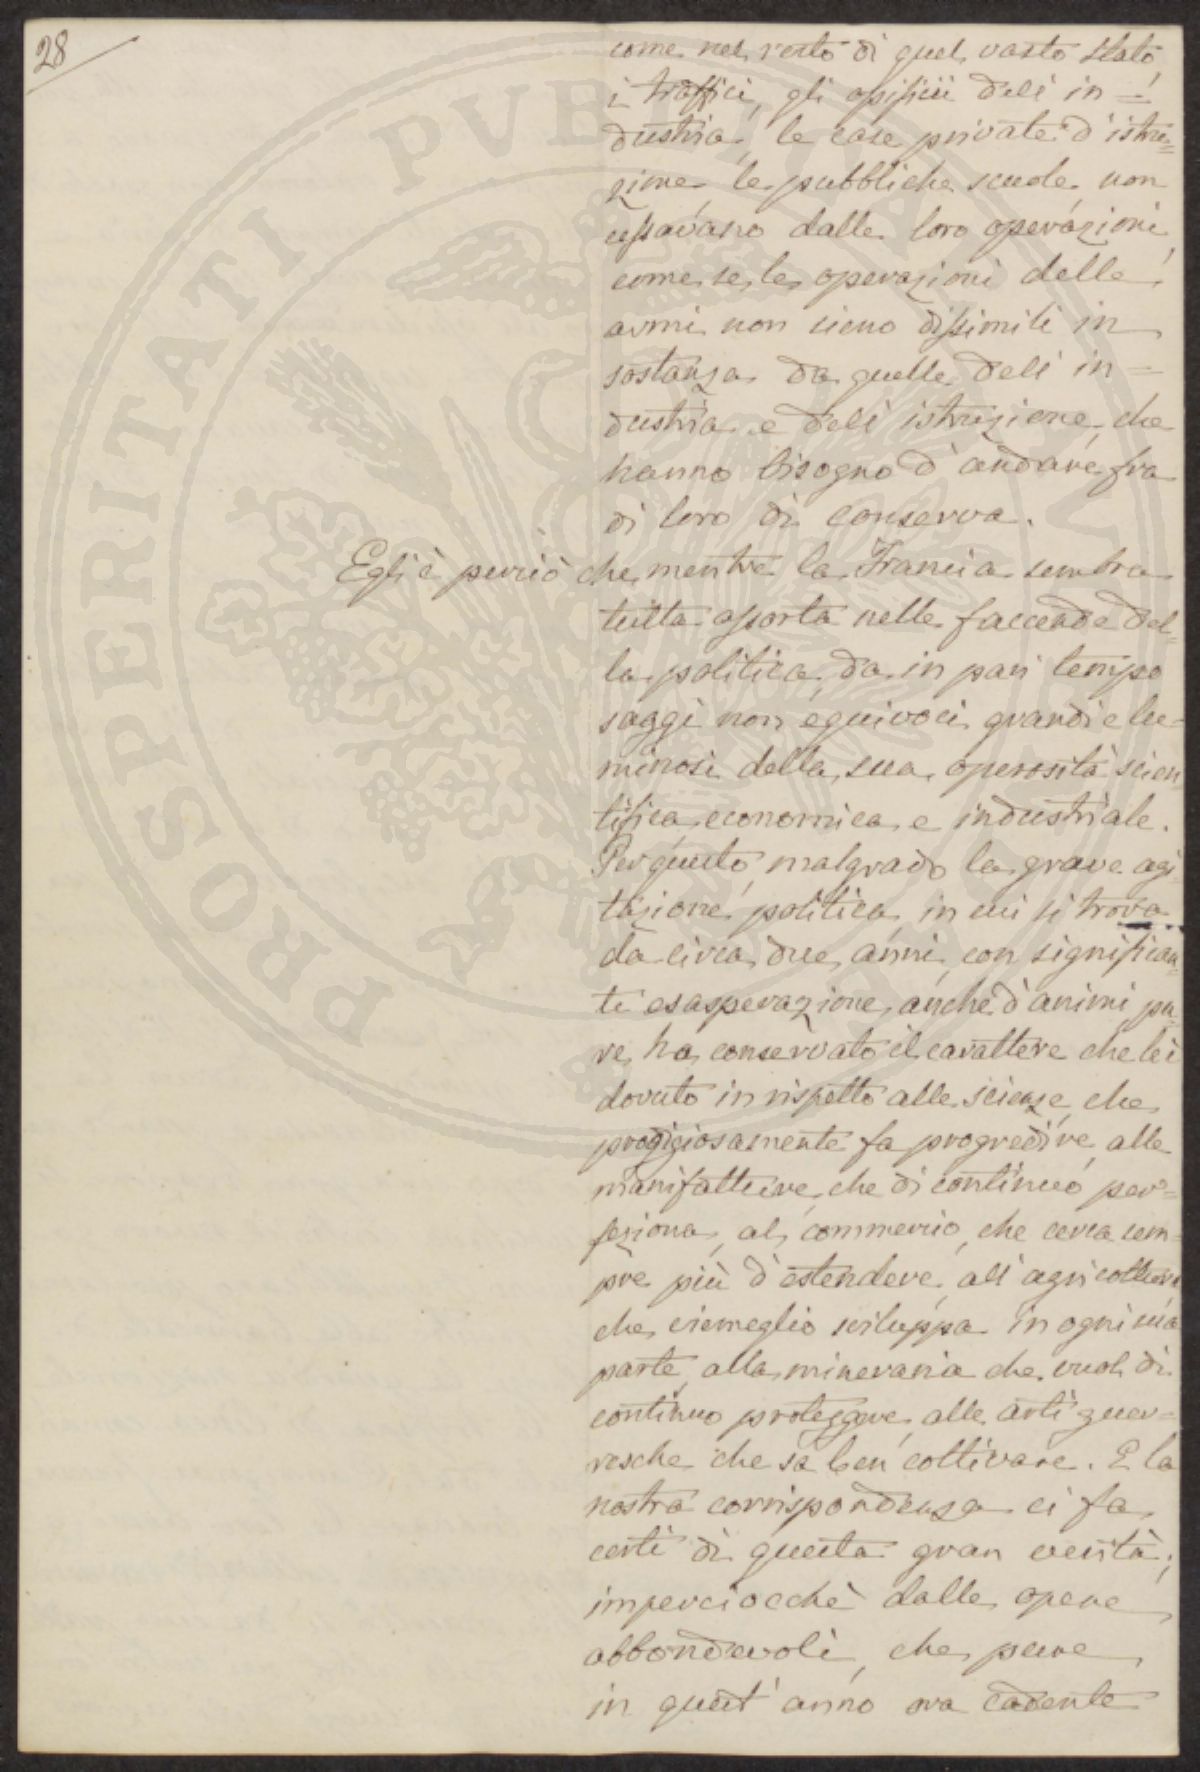 28
come nel resto di quel vasto stato,
i traffici, gli opificii dell' in=
dustria, le case private d'istru=
zione, le pubbliche scuole, non
cessavano dalle loro operazioni,
come se le operazioni delle
armi non sieno dissimili in
sostanza da quelle dell' in=
dustria e dell' istruzione, che
hanno bisogno d' andare fra
di loro di conserva.
Egli è perciò che mentre la Francia sembra
tutta assorta nelle faccende del=
la politica, da in pari tempo
saggi non equivoci grandi e lu=
minosi della sua operosità scien
tifica economica e industriale.
Per questo, malgrado la grave agi
tazione politica, in cui si trova
da circa due anni, con significan=
te esasperazione, anche d'animi, pu=
re ha conservato il carattere che le è
dovuto in rispetto alle scienze, che
prodigiosamente fa progredire, alle
manifatture, che di continuo per=
feziona, al commercio, che cerca sem=
pre più d' estendere, all' agricoltura
che viemeglio sviluppa in ogni sua
parte, alla mineraria che vuol di
continuo proteggere, alle arti guer=
resche che sa ben coltivare. E la
nostra corrispondenza ci fa
certi di questa gran verità;
imperciocchè dalle opere
abbondevoli, che pure
in quest' anno ora cadente
PROSPERITATI PUBLICAE